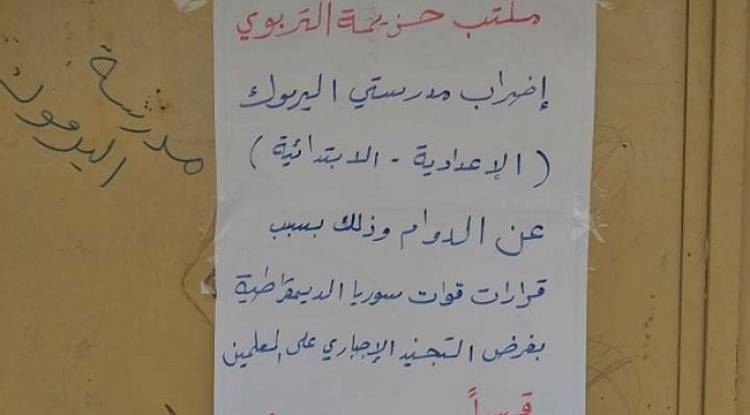 مكتب حزيمة التربوي
إضراب مدرستي اليرموك
( الإعدادية - الابتدائية )
عن الدوام وذلك بسبب
قرارات قوات سوريا الديمقراطية
بفرض التجنيد الإجباري على المعلمين
مدرسة
اليرموك